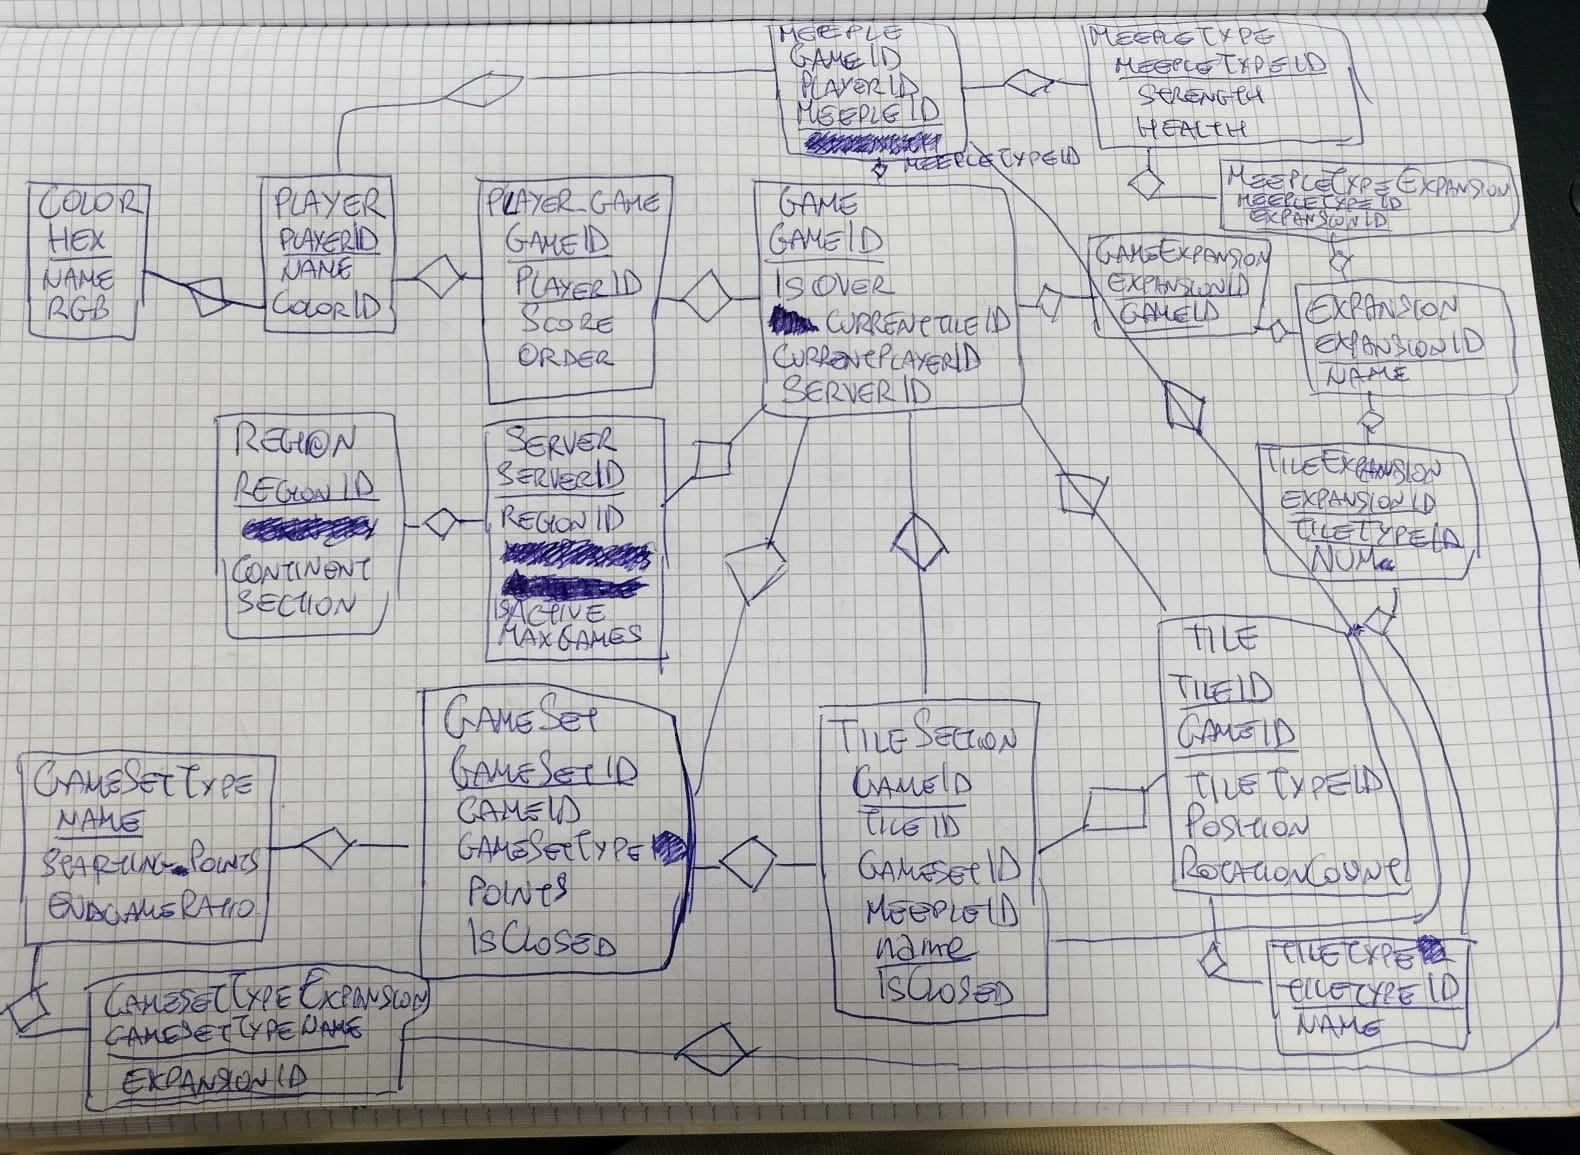 MEEPLE
GAMEID
PLAYERID
MEEPLEID
MEEPLETYPEID
MEEPLETYPE
MEEPLETYPEID
STRENGTH
HEALTH
MEEPLETYPEEXPANSION
MEEPLETYPEID
EXPANSIONID
COLOR
HEX
NAME
RGB
PLAYER
PLAYERID
NAME
COLORID
PLAYER_GAME
GAMEID
PLAYERID
SCORE
ORDER
GAME
GAMEID
ISOVER
CURRENTTILEID
CURRENTPLAYERID
SERVERID
GAMEEXPANSION
EXPANSIONID
GAMEID
EXPANSION
EXPANSIONID
NAME
REGION
REGIONID
CONTINENT
SECTION
SERVER
SERVERID
REGIONID
ISACTIVE
MAXGAMES
TILEEXPANSION
EXPANSIONID
TILETYPEID
NUM
GAMESETTYPE
NAME
STARTING POINTS
ENDGAMERATIO
GAMESET
GAMESETID
GAMEID
GAMESETTYPE
POINTS
ISCLOSED
TILESECTION
GAMEID
TILEID
GAMESETID
MEEPLEID
name
ISCLOSED
TILE
TILEID
GAMEID
TILETYPEID
POSITION
ROTATIONCOUNT
GAMESETTYPEEXPANSION
GAMESETTYPENAME
EXPANSIONID
TILETYPE
TILETYPEID
NAME